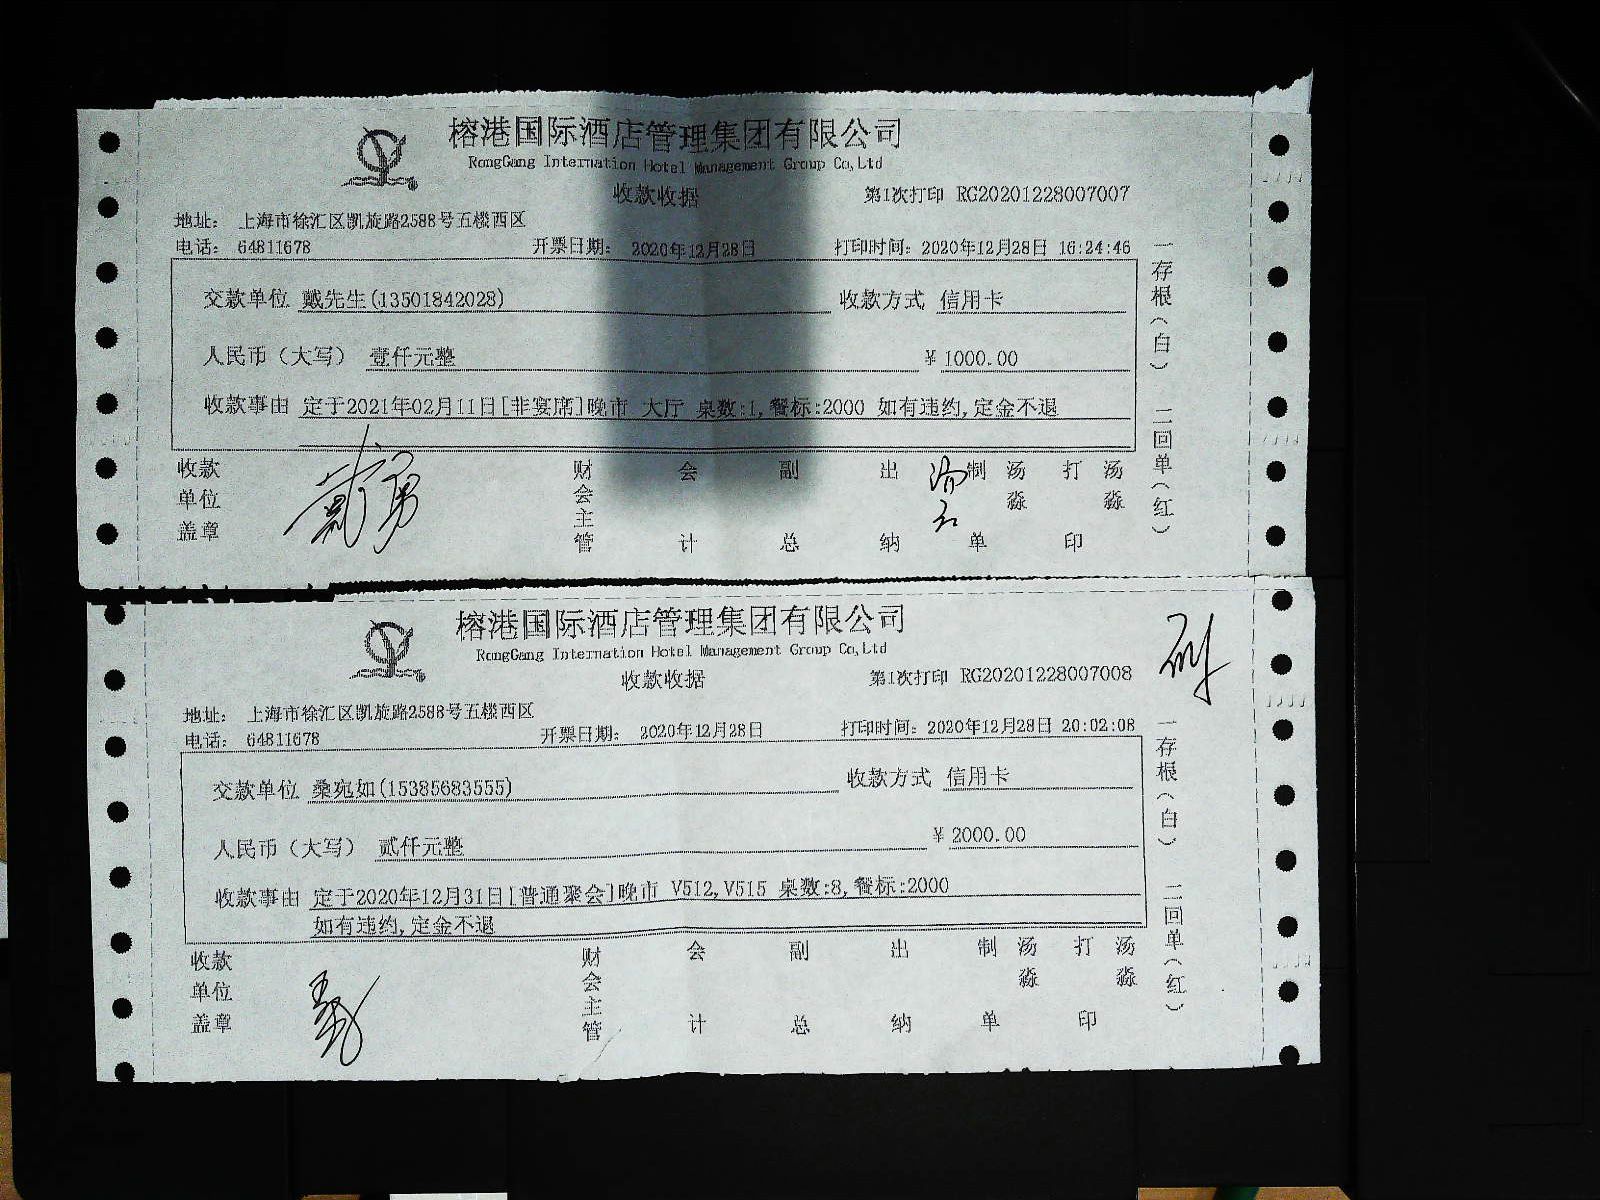 榕港国际酒店管理集团有限公司
RongGang Internation Hotel Management Group Co,Ltd
收款收据
第1次打印 RG20201228007007
地址： 上海市徐汇区凯旋路2588号五楼西区
电话： 64811678 开票日期： 2020年12月28日 打印时间：2020年12月28日 16:24:46
交款单位 戴先生(13501842028) 收款方式 信用卡
人民币（大写） 壹仟元整 ￥1000.00
收款事由 定于2021年02月11日[非宴席]晚市 大厅 桌数:1,餐标:2000 如有违约,定金不退
收款单位盖章 戴勇 财会主管 会计 副总 出纳 制单 汤淼 打印 汤淼
一存根（白） 二回单（红）
榕港国际酒店管理集团有限公司
RongGang Internation Hotel Management Group Co,Ltd
收款收据
第1次打印 RG20201228007008
地址： 上海市徐汇区凯旋路2588号五楼西区
电话： 64811678 开票日期： 2020年12月28日 打印时间：2020年12月28日 20:02:08
交款单位 桑宛如(15385683555) 收款方式 信用卡
人民币（大写） 贰仟元整 ￥2000.00
收款事由 定于2020年12月31日[普通聚会]晚市 V512,V515 桌数:8,餐标:2000
如有违约,定金不退
收款单位盖章 财会主管 会计 副总 出纳 制单 汤淼 打印 汤淼
一存根（白） 二回单（红）